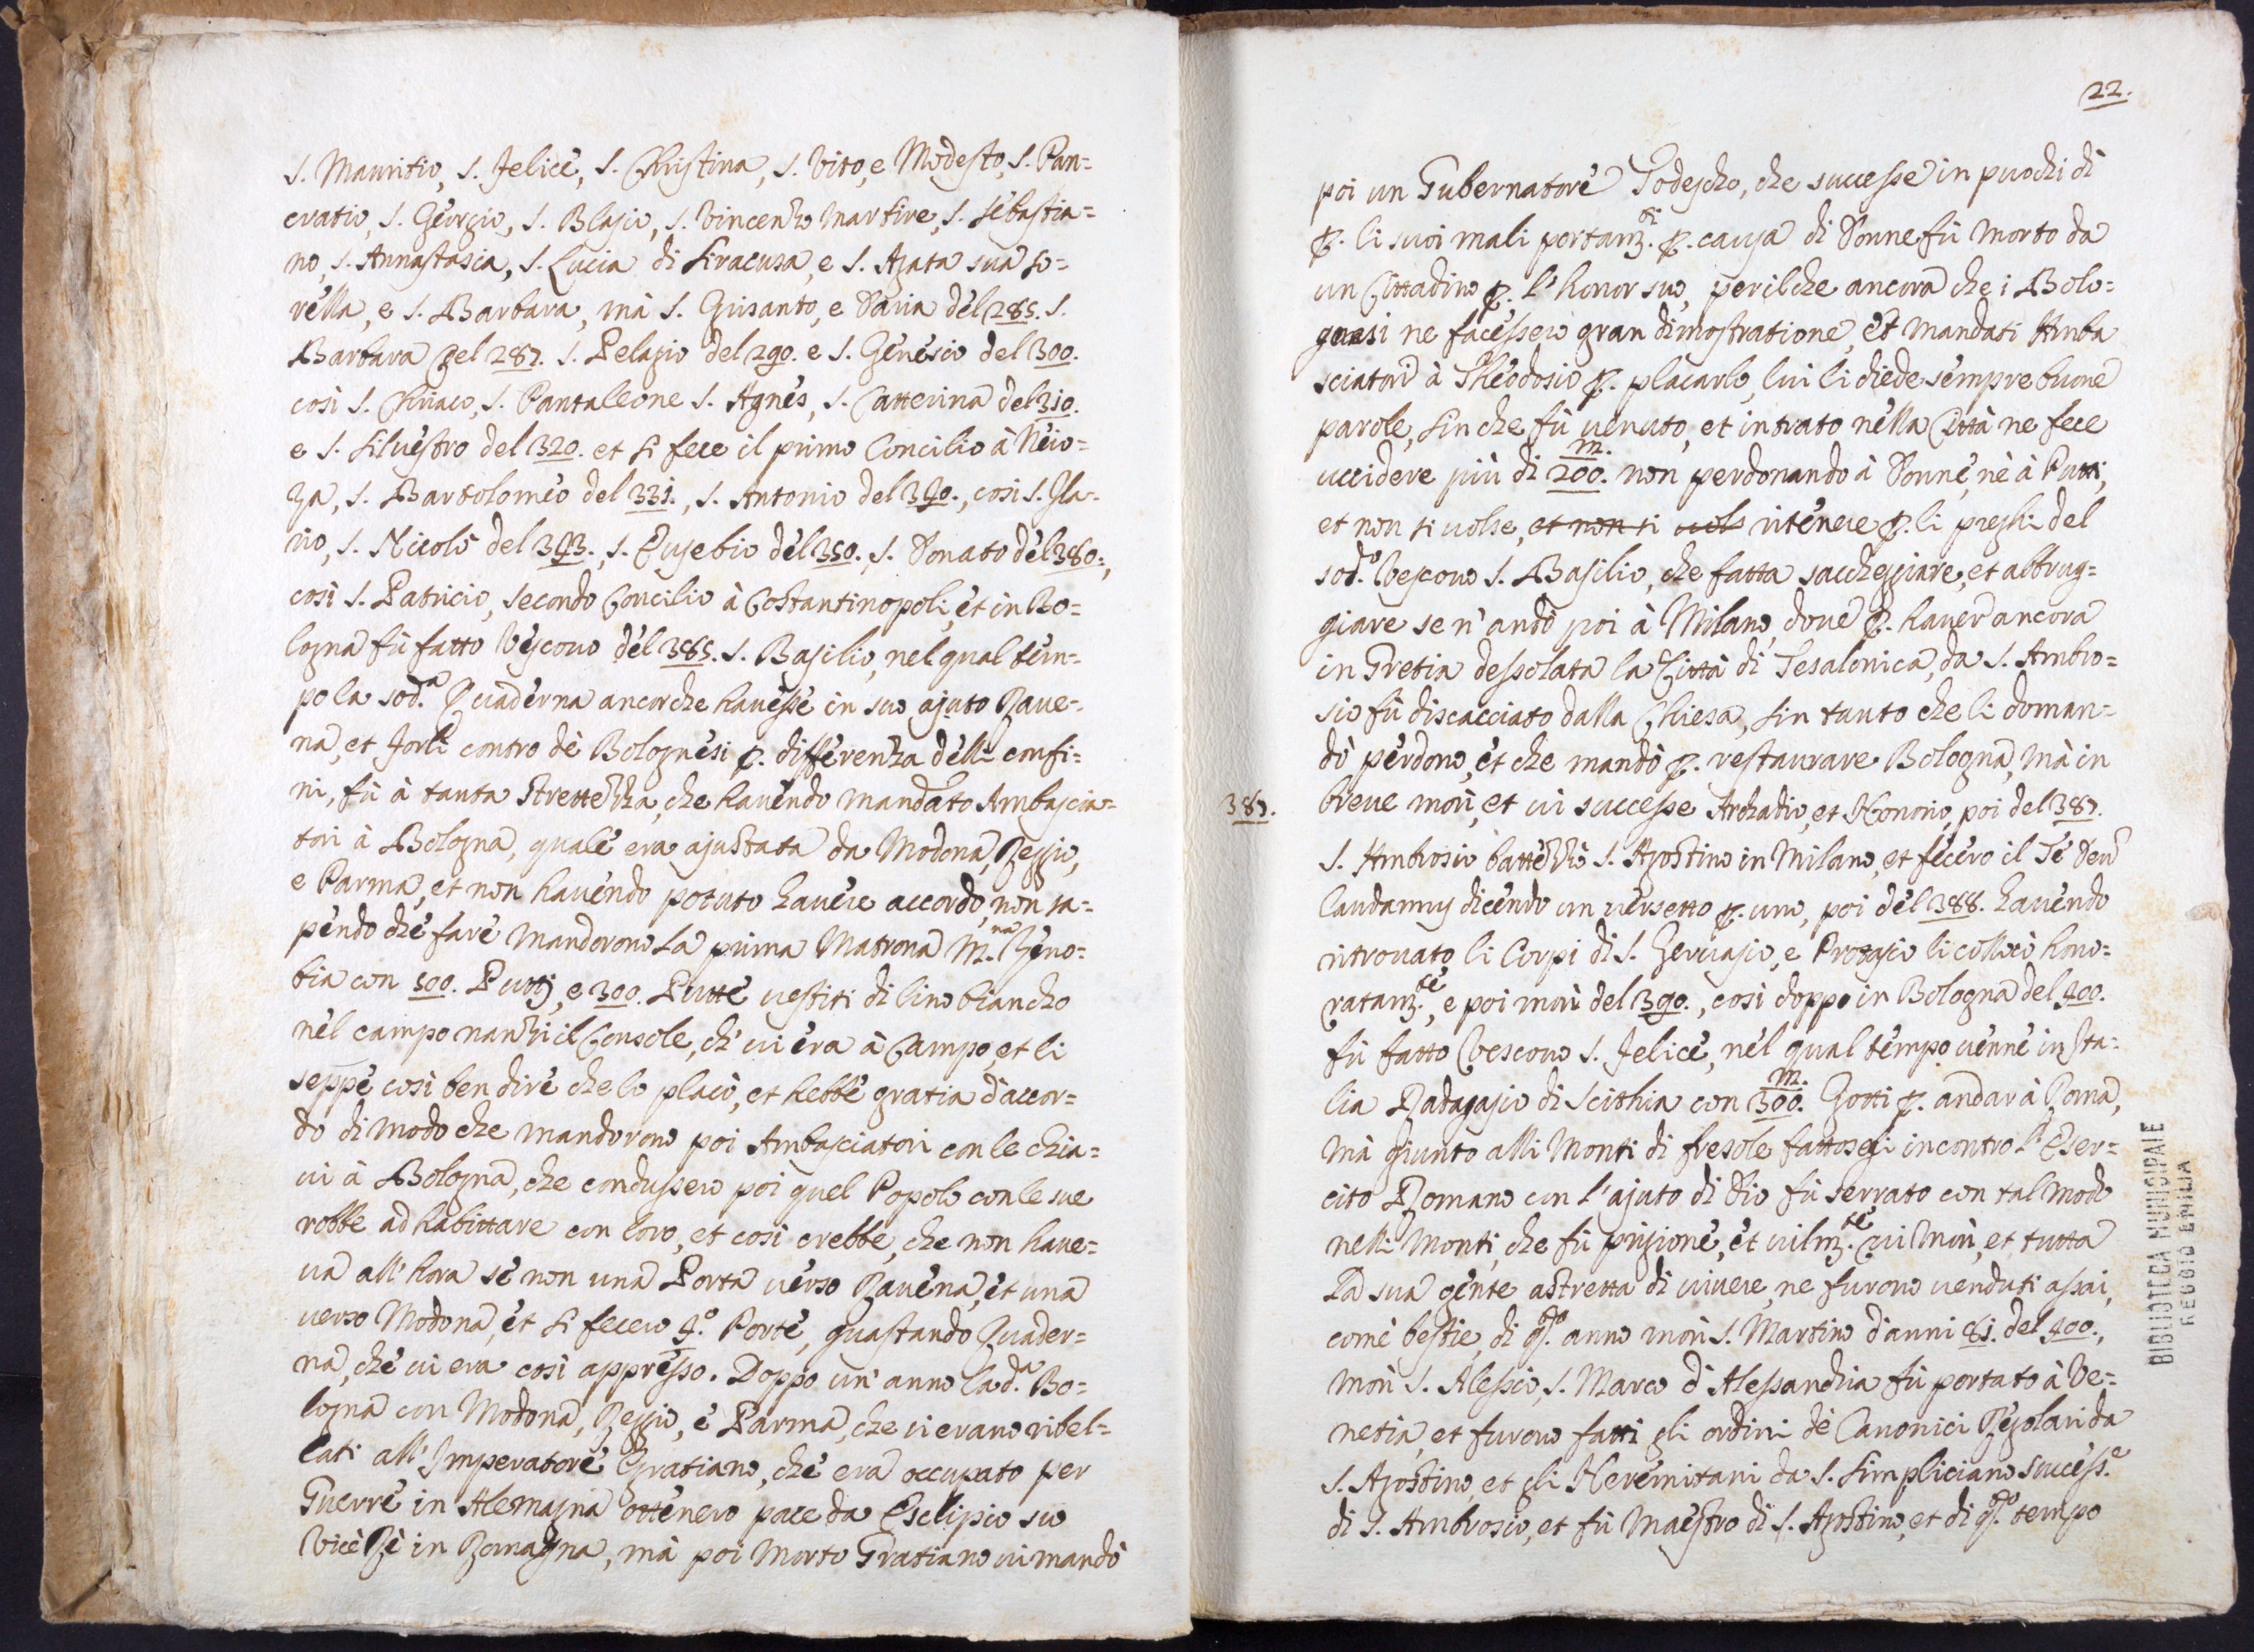 S. Mauritio, S. Felice, S. Christina, S. Vito, e Modesto, S. Pan=
cratio, S. Georgio, S. Blasio, S. Vincenzo Martire, S. Sebastia=
no, S. Annastasia, S. Lucia di Siracusa, e S. Agata sua so=
rella, e S. Barbara, mà S. Grisanto, e Daria del 285. S.
Barbara del 287. S. Pelagio del 290. e S. Genesio del 300.
così S. Chiriaco, S. Pantaleone S. Agnes, S. Catterina del 310.
e S. Silvestro del 320. et si fece il primo Concilio à
za, S. Bartolomeo del 331., S. Antonio del 340., così S. Ila=
rio, S. Nicolò del 343., S. Eusebio del 350., S. Donato del 380.,
così S. Patricio, secondo Concilio à Costantinopoli, et in Bo=
logna fù fatto Vescovo del 385. S. Basilio, nel qual tem=
po la sod.a Quaderna ancorche havesse in suo ajuto Rave=
na, et Forlì contro de Bolognesi p. differenza delli confi=
ni, fù à tanta strettezza, che havendo mandato Ambascia=
tori à Bologna, quale era ajustata da Modona, Reggio,
e Parma, et non havendo potuto havere accordo, non sa=
pendo che fare mandorono la prima Matrona M.na Zeno=
bia con 500. Putti, e 300. Putte vestiti di lino biancho
nel campo nanzi il Console, ch' vi era à Campo, et li
seppe così ben dire che lo placò, et hebbe gratia d'accor=
do di modo che mandorono poi Ambasciatori con le chia=
vi à Bologna, che condussero poi quel Popolo con le sue
robbe ad habittare con loro, et così crebbe, che non have=
va all'hora se non una Porta verso Ravena, et una
verso Modona, et si fecero 4.o Porte, guastando Quader=
na, che vi era così appresso. Doppo un' anno la d.a Bo=
logna con Modona, Reggio, e Parma, che si erano ribel=
lati all' Imperatore Gratiano, che era occupato per
Guerre in Alemagna ottenero pace da Esclipio suo
Vice Rè in Romagna, mà poi morto Gratiano vi mandò
22.
poi un Gubernatore Todescho, che successe in puochi dì
p. li suoi mali portam.ti p. causa di Donne fù morto da
un Cittadino p. l'honor suo, perilche ancora che i Bolo=
gnesi ne facessero gran dimostratione, et mandati Amba
sciatori à Theodosio p. placarlo, lui li diede sempre buone
parole, sin che fù venuto, et intrato nella Città ne fece
uccidere più di 200.m. non perdonando à Donne, nè à Putti,
et non si volse, et non si vols ritenere p. li preghi del
sod.o Vescovo S. Basilio, che fatta saccheggiare, et abbrug=
giare se n' andò poi à Milano, dove p. haver ancora
in Gretia dessolata la Città di Tesalonica, da S. Ambro=
sio fù discacciato dalla Chiesa, sin tanto che li doman=
dò perdono, et che mandò p. restaurare Bologna, mà in
387. breve morì, et vi successe Archadio, et Honorio, poi del 387.
S. Ambrosio battezzò S. Agostino in Milano, et fecero il Te Deu
laudamus dicendo un versetto p. uno, poi del 388. havendo
ritrovato li Corpi di S. Gervasio, e Protasio li collocò hono=
ratam.te, e poi morì del 390., così doppo in Bologna del 400.
fù fatto Vescovo S. Felice, nel qual tempo venne in Ita=
lia Radagasio di Scithia con 300.m. Gotti p. andar à Roma,
mà giunto alli Monti di fiesole fattosegli incontro l' Eser=
cito Romano con l'ajuto di Dio fù serrato con tal modo
nelli Monti, che fù prigione, et vilm.te vi morì, et tutta
la sua gente astretta di vivere, ne furono venduti assai,
come bestie, di q.sto anno morì S. Martino d'anni 81. del 400.,
morì S. Alessio, S. Marco d'Alessandria fù portato à Ve=
netia, et furono fatti gli ordini de Canonici Regolari da
S. Agostino, et gli Heremitani da S. Simpliciano success.e
di S. Ambrosio, et fù Maestro di S. Agostino, et di q.sto tempo
BIBLIOTECA MUNICIPALE
REGGIO EMILIA